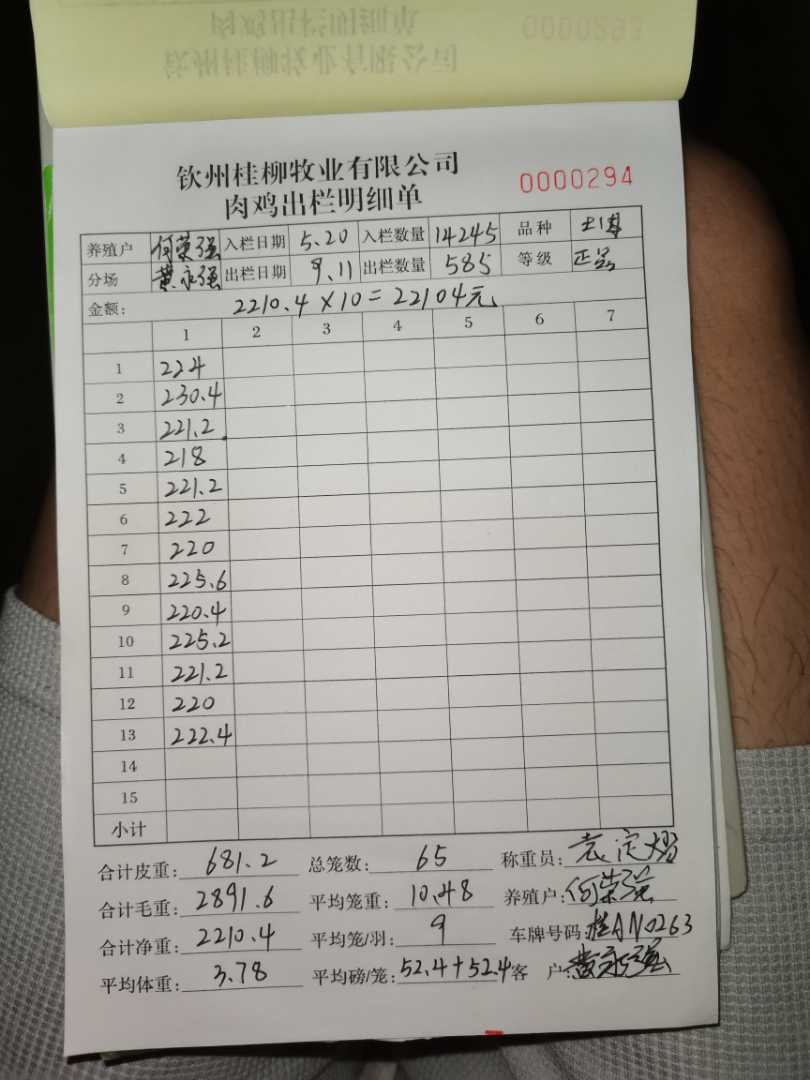 钦州桂柳牧业有限公司
肉鸡出栏明细单
0000294
养殖户 何荣强 入栏日期 5.20 入栏数量 14245 品种
分场 黄永强 出栏日期 9.11 出栏数量 585 等级 正品
金额: 2210.4×10=22104元
1 2 3 4 5 6 7
1 224
2 230.4
3 221.2
4 218
5 221.2
6 222
7 220
8 225.6
9 220.4
10 225.2
11 221.2
12 220
13 222.4
14
15
小计
合计皮重: 681.2 总笼数: 65 称重员:
合计毛重: 2891.6 平均笼重: 10.48 养殖户: 何荣强
合计净重: 2210.4 平均笼/羽: 9 车牌号码: 桂AN0263
平均体重: 3.78 平均磅/笼: 52.4+52.4 客 户: 黄永强